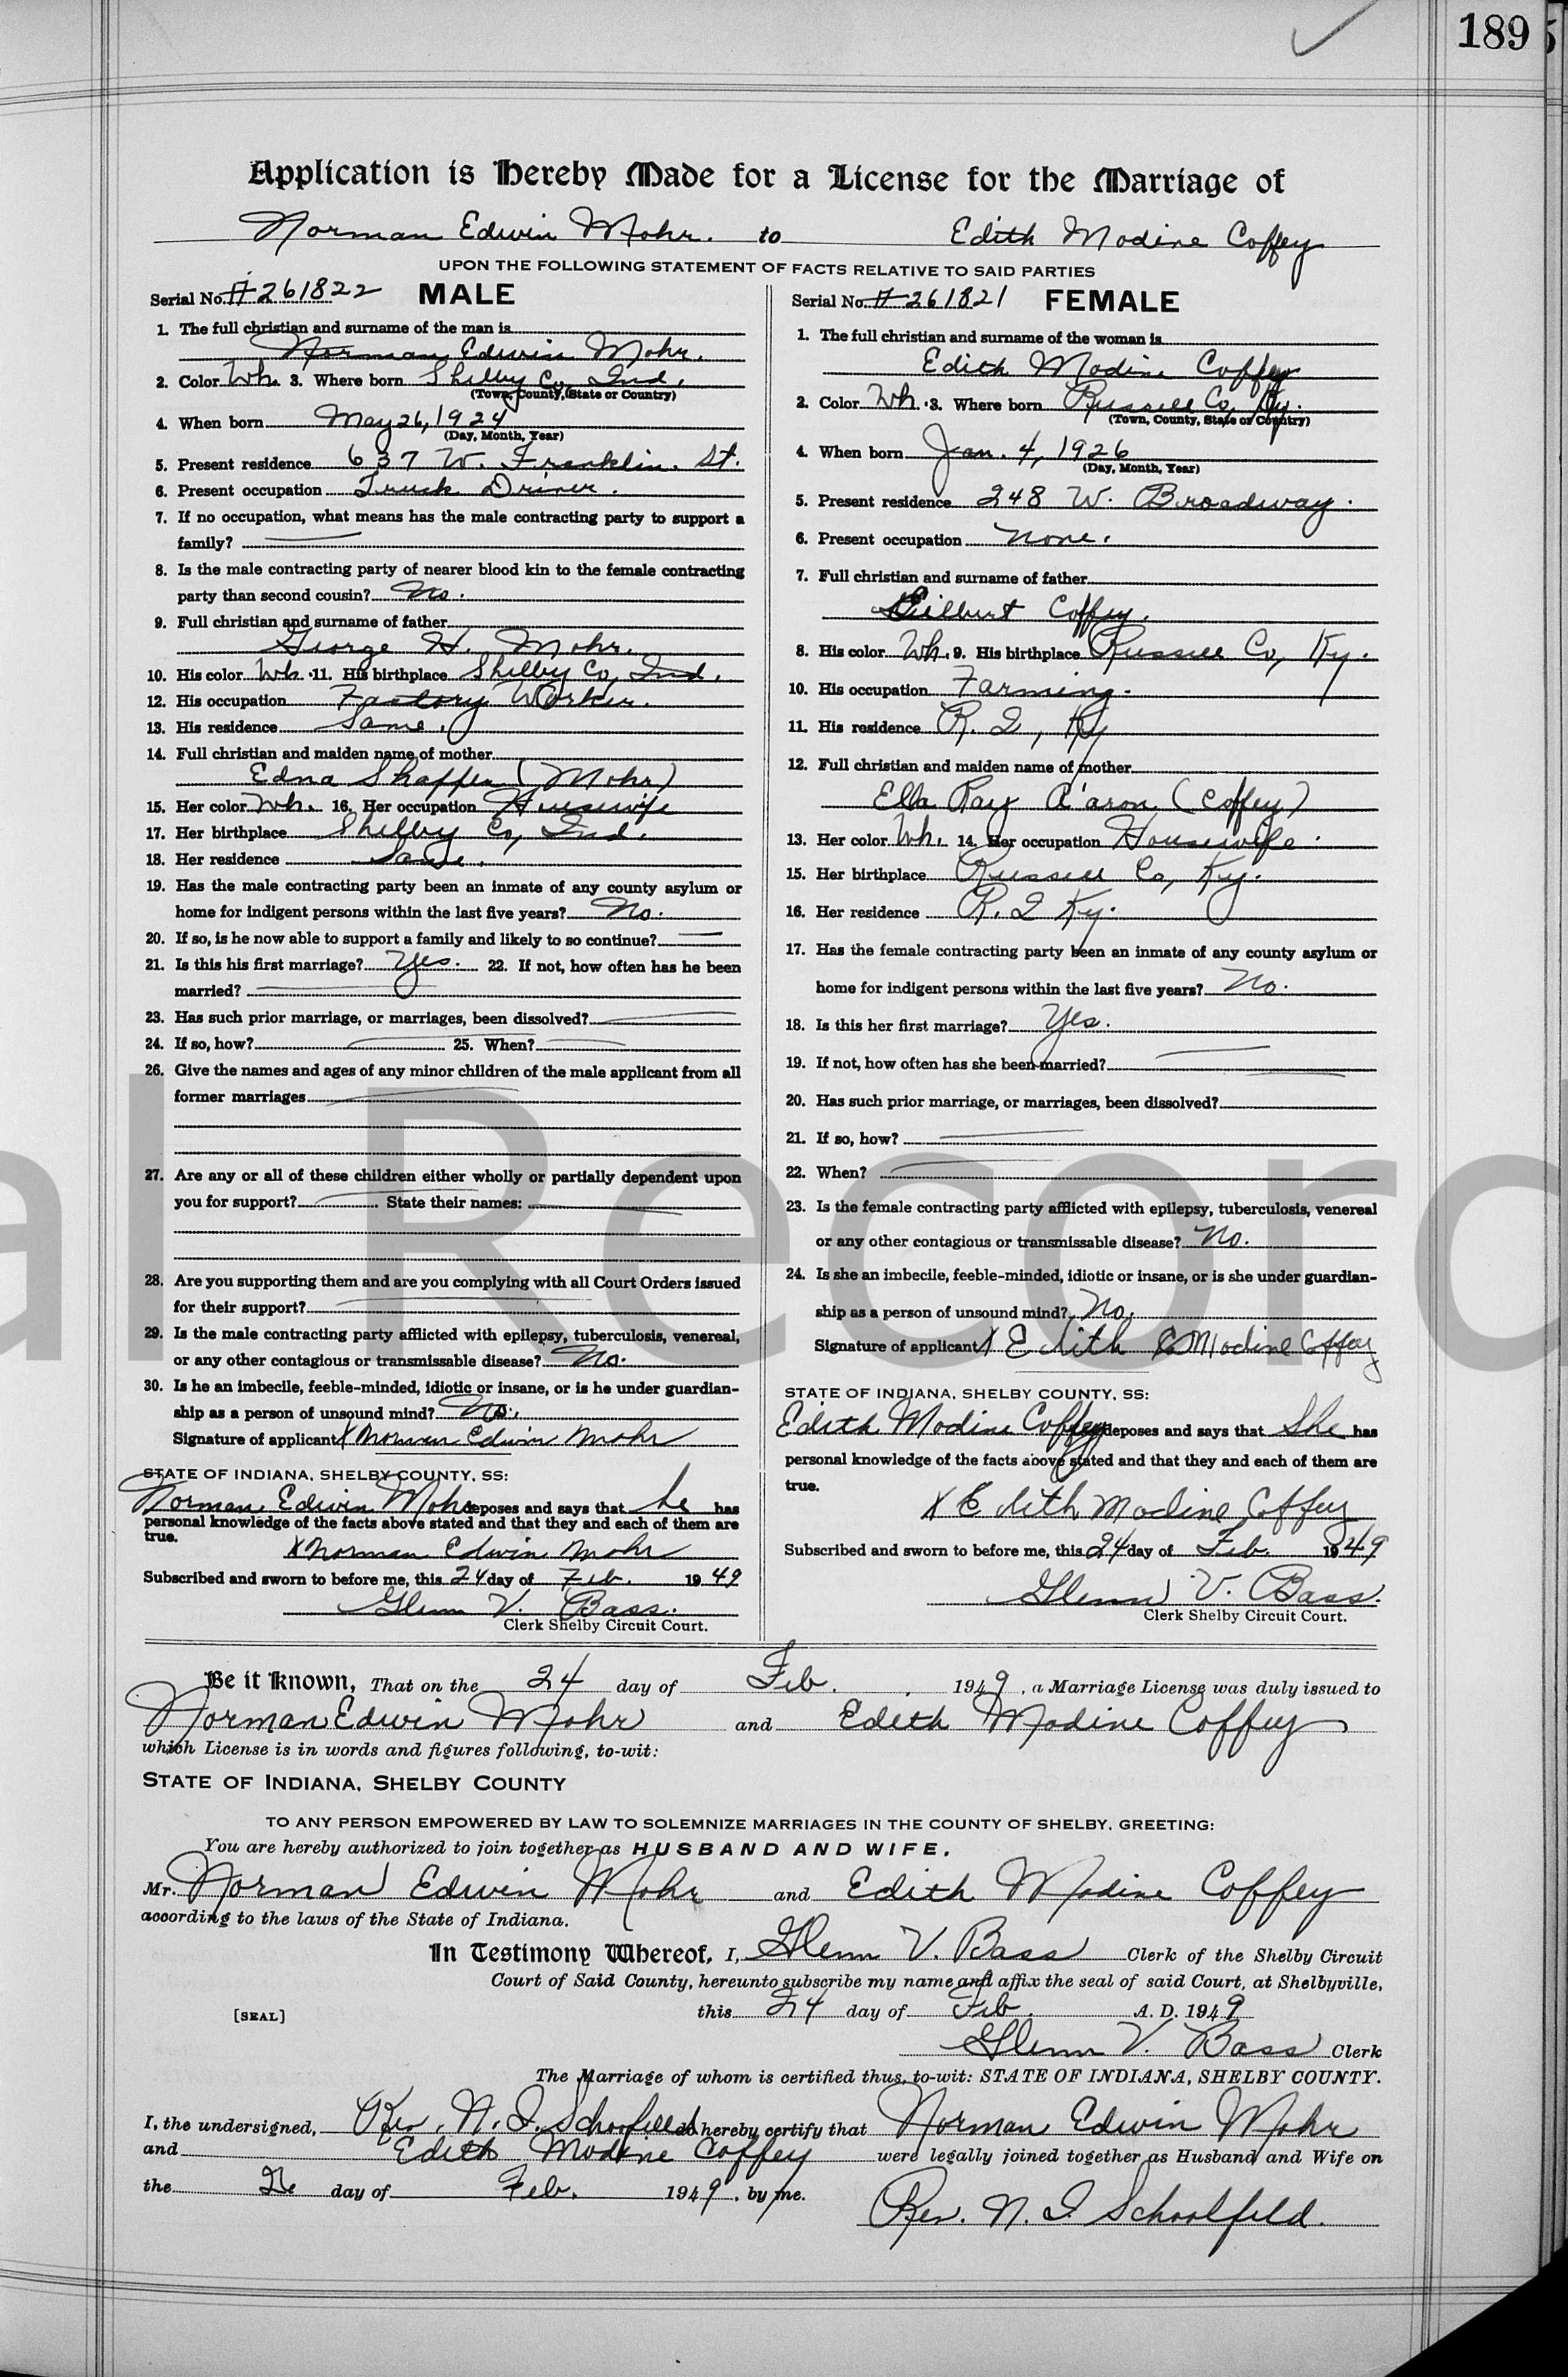 189
Application is Hereby Made for a License for the Marriage of
Norman Edwin Mohr. to Edith Modine Coffey
UPON THE FOLLOWING STATEMENT OF FACTS RELATIVE TO SAID PARTIES
Serial No. #261822 MALE
1. The full christian and surname of the man is
Norman Edwin Mohr.
2. Color Wh. 3. Where born Shelby Co, Ind.
(Town, County, State or Country)
4. When born May 26, 1924
(Day, Month, Year)
5. Present residence 637 W. Franklin. St.
6. Present occupation Truck Driver.
7. If no occupation, what means has the male contracting party to support a
family?
8. Is the male contracting party of nearer blood kin to the female contracting
party than second cousin? No.
9. Full christian and surname of father
George H. Mohr.
10. His color Wh. 11. His birthplace Shelby Co, Ind.
12. His occupation Factory Worker.
13. His residence Same.
14. Full christian and maiden name of mother
Edna Shaffer (Mohr)
15. Her color Wh. 16. Her occupation Housewife
17. Her birthplace Shelby Co, Ind.
18. Her residence Same.
19. Has the male contracting party been an inmate of any county asylum or
home for indigent persons within the last five years? No.
20. If so, is he now able to support a family and likely to so continue?
21. Is this his first marriage? Yes. 22. If not, how often has he been
married?
23. Has such prior marriage, or marriages, been dissolved?
24. If so, how? 25. When?
26. Give the names and ages of any minor children of the male applicant from all
former marriages
27. Are any or all of these children either wholly or partially dependent upon
you for support? State their names:
28. Are you supporting them and are you complying with all Court Orders issued
for their support?
29. Is the male contracting party afflicted with epilepsy, tuberculosis, venereal,
or any other contagious or transmissable disease? No.
30. Is he an imbecile, feeble-minded, idiotic or insane, or is he under guardian-
ship as a person of unsound mind? No.
Signature of applicant X Norman Edwin Mohr
STATE OF INDIANA, SHELBY COUNTY, SS:
Norman Edwin Mohr deposes and says that he has
personal knowledge of the facts above stated and that they and each of them are
true.
X Norman Edwin Mohr
Subscribed and sworn to before me, this 24 day of Feb. 1949
Glenn V. Bass.
Clerk Shelby Circuit Court.
Serial No. #261821 FEMALE
1. The full christian and surname of the woman is
Edith Modine Coffey
2. Color Wh. 3. Where born Russell Co, Ky.
(Town, County, State or Country)
4. When born Jan. 4, 1926
(Day, Month, Year)
5. Present residence 248 W. Broadway.
6. Present occupation None.
7. Full christian and surname of father
Coffey.
8. His color Wh. 9. His birthplace Russell Co, Ky.
10. His occupation Farming.
11. His residence R. 2, Ky
12. Full christian and maiden name of mother
Ella Ray A'aron (Coffey)
13. Her color Wh. 14. Her occupation Housewife.
15. Her birthplace Russell Co, Ky.
16. Her residence R. 2 Ky.
17. Has the female contracting party been an inmate of any county asylum or
home for indigent persons within the last five years? No.
18. Is this her first marriage? Yes.
19. If not, how often has she been married?
20. Has such prior marriage, or marriages, been dissolved?
21. If so, how?
22. When?
23. Is the female contracting party afflicted with epilepsy, tuberculosis, venereal
or any other contagious or transmissable disease? No.
24. Is she an imbecile, feeble-minded, idiotic or insane, or is she under guardian-
ship as a person of unsound mind? No.
Signature of applicant X Edith Modine Coffey
STATE OF INDIANA, SHELBY COUNTY, SS:
Edith Modine Coffey deposes and says that She has
personal knowledge of the facts above stated and that they and each of them are
true.
X Edith Modine Coffey
Subscribed and sworn to before me, this 24 day of Feb. 1949
Glenn V. Bass.
Clerk Shelby Circuit Court.
Be it Known, That on the 24 day of Feb. 1949, a Marriage License was duly issued to
Norman Edwin Mohr and Edith Modine Coffey
which License is in words and figures following, to-wit:
STATE OF INDIANA, SHELBY COUNTY
TO ANY PERSON EMPOWERED BY LAW TO SOLEMNIZE MARRIAGES IN THE COUNTY OF SHELBY, GREETING:
You are hereby authorized to join together as HUSBAND AND WIFE.
Mr. Norman Edwin Mohr and Edith Modine Coffey
according to the laws of the State of Indiana.
In Testimony Whereof, I, Glenn V. Bass Clerk of the Shelby Circuit
Court of Said County, hereunto subscribe my name and affix the seal of said Court, at Shelbyville,
[SEAL] this 24 day of Feb. A. D. 1949
Glenn V. Bass Clerk
The Marriage of whom is certified thus, to-wit: STATE OF INDIANA, SHELBY COUNTY.
I, the undersigned, Rev. N. I. Schoolfield do hereby certify that Norman Edwin Mohr
and Edith Modine Coffey were legally joined together as Husband and Wife on
the day of Feb. 1949, by me.
Rev. N. I. Schoolfield.
al Record